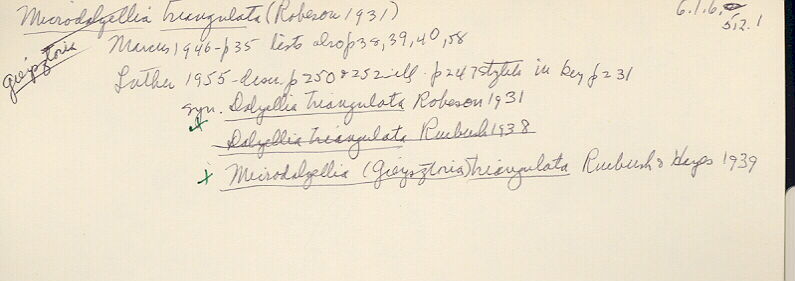 Microdalyellia triangulata (Robeson 1931)
6.1.6.
5.2.1
Gieysztoria
Marcus 1946-p35 lists also p38,39,40,58
Luther 1955-descr. p250&252-ill. p247 stylets in key p231
syn. Dalyellia triangulata Robeson 1931
x Dalyellia triangulata Ruebush 1938
x Microdalyellia (Gieysztoria) triangulata Ruebush & Hayes 1939